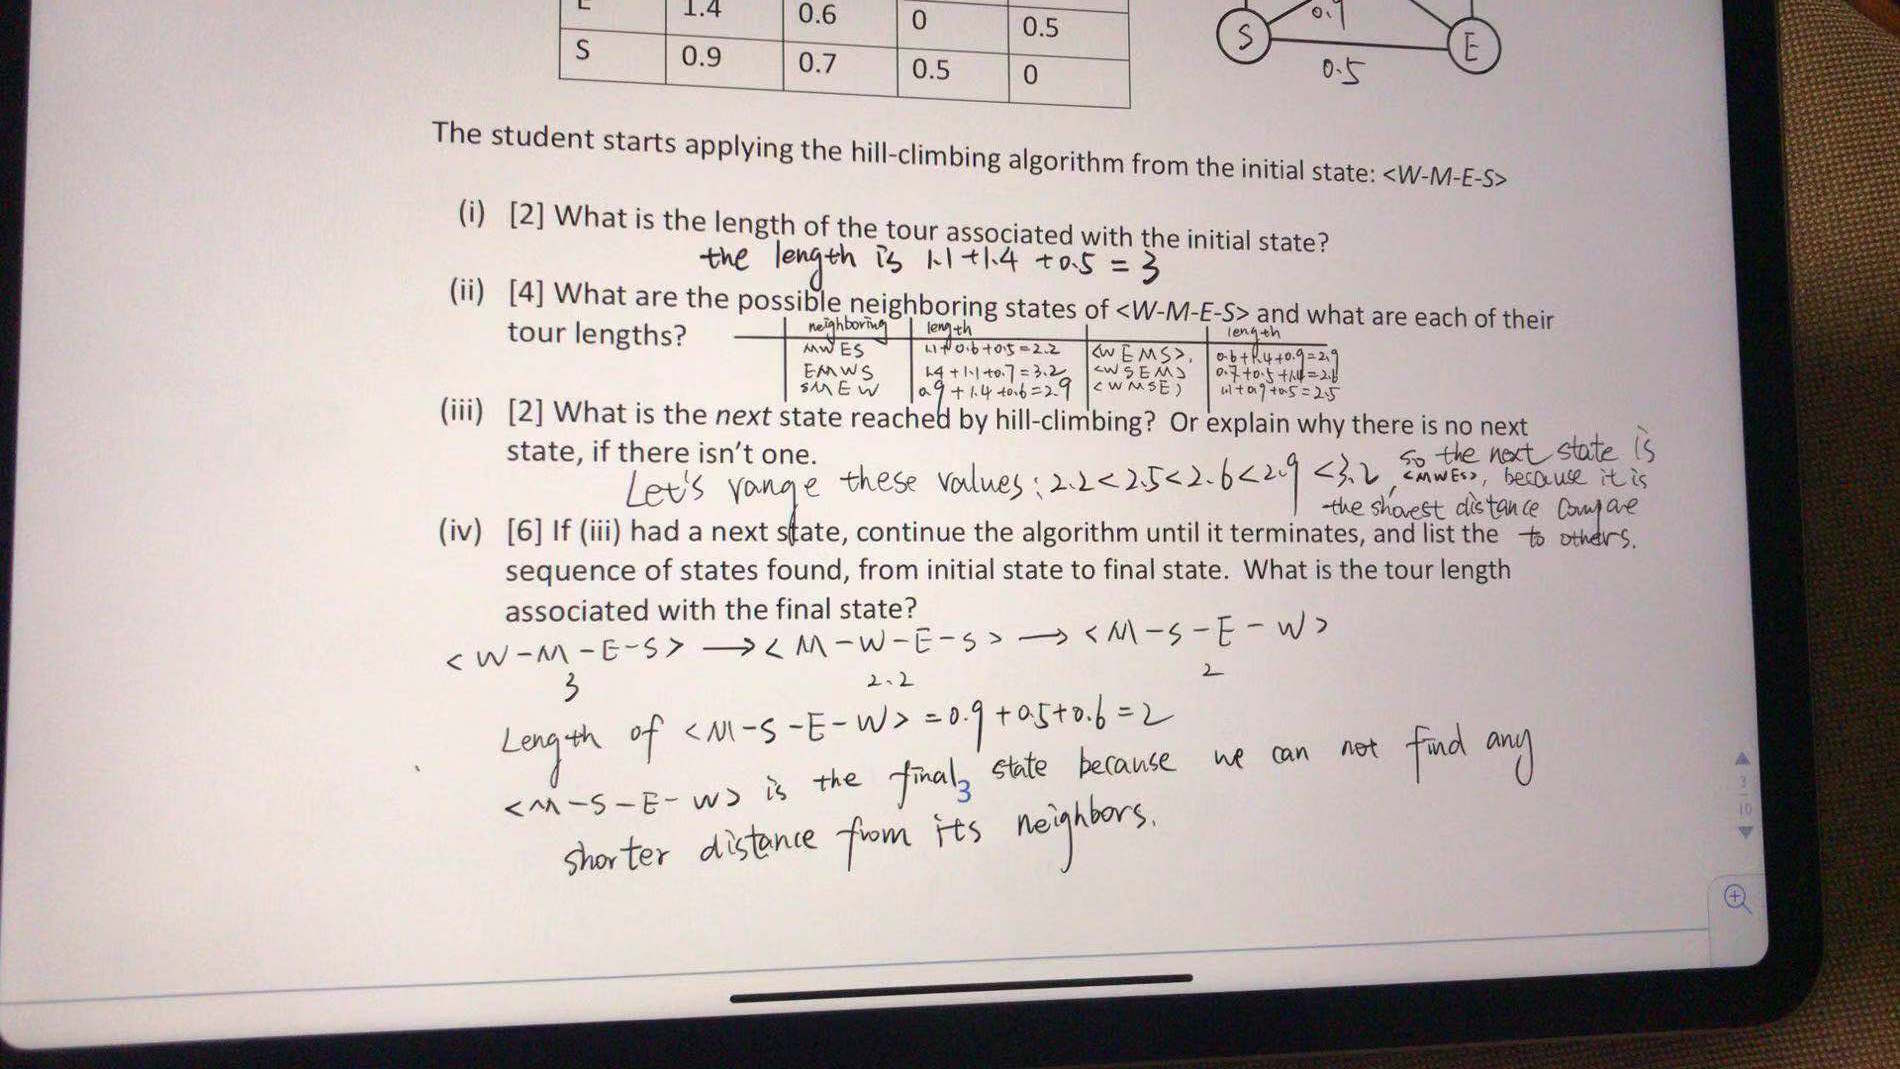 1.4 0.6 0 0.5
S 0.9 0.7 0.5 0
0.9
S E
0.5
The student starts applying the hill-climbing algorithm from the initial state: <W-M-E-S>
(i) [2] What is the length of the tour associated with the initial state?
the length is 1.1+1.4 +0.5 = 3
(ii) [4] What are the possible neighboring states of <W-M-E-S> and what are each of their
tour lengths?
neighboring length length
MWES 1.1+0.6+0.5=2.2 <WEMS>, 0.6+1.4+0.9=2.9
EMWS 1.4+1.1+0.7=3.2 <WSEM> 0.7+0.5+1.4=2.6
SMEW 0.9+1.4+0.6=2.9 <WMSE> 1.1+0.9+0.5=2.5
(iii) [2] What is the next state reached by hill-climbing? Or explain why there is no next
state, if there isn't one.
Let's range these values: 2.2<2.5<2.6<2.9<3.2, so the next state is
<MWES>, because it is
the shorest distance compare
to others.
(iv) [6] If (iii) had a next state, continue the algorithm until it terminates, and list the
sequence of states found, from initial state to final state. What is the tour length
associated with the final state?
<W-M-E-S> → <M-W-E-S> → <M-S-E-W>
3 2.2 2
Length of <M-S-E-W> = 0.9+0.5+0.6=2
<M-S-E-W> is the final state because we can not find any
3
shorter distance from its neighbors.
3
10